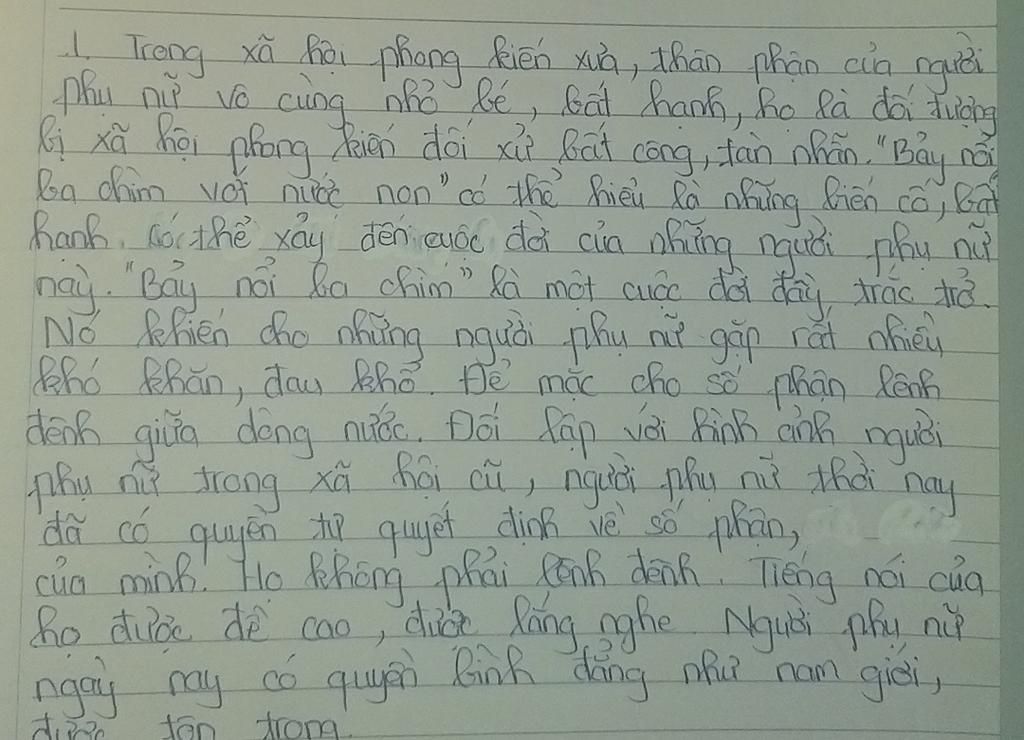 1. Trong xã hội phong kiến xưa, thân phận của người
phụ nữ vô cùng nhỏ bé, bất hạnh, họ là đối tượng
bị xã hội phong kiến đối xử bất công, tàn nhẫn. "Bảy nổi
ba chìm với nước non" có thể hiểu là những biến cố, bất
hạnh có thể xảy đến cuộc đời của những người phụ nữ
này. "Bảy nổi ba chìm" là một cuộc đời đầy trắc trở.
Nó khiến cho những người phụ nữ gặp rất nhiều
khó khăn, đau khổ. Để mặc cho số phận lênh
đênh giữa dòng nước. Đối lập với hình ảnh người
phụ nữ trong xã hội cũ, người phụ nữ thời nay
đã có quyền tự quyết định về số phận,
của mình. Họ không phải lênh đênh. Tiếng nói của
họ được đề cao, được lắng nghe Người phụ nữ
ngày nay có quyền bình đẳng như nam giới,
được tôn trọng.